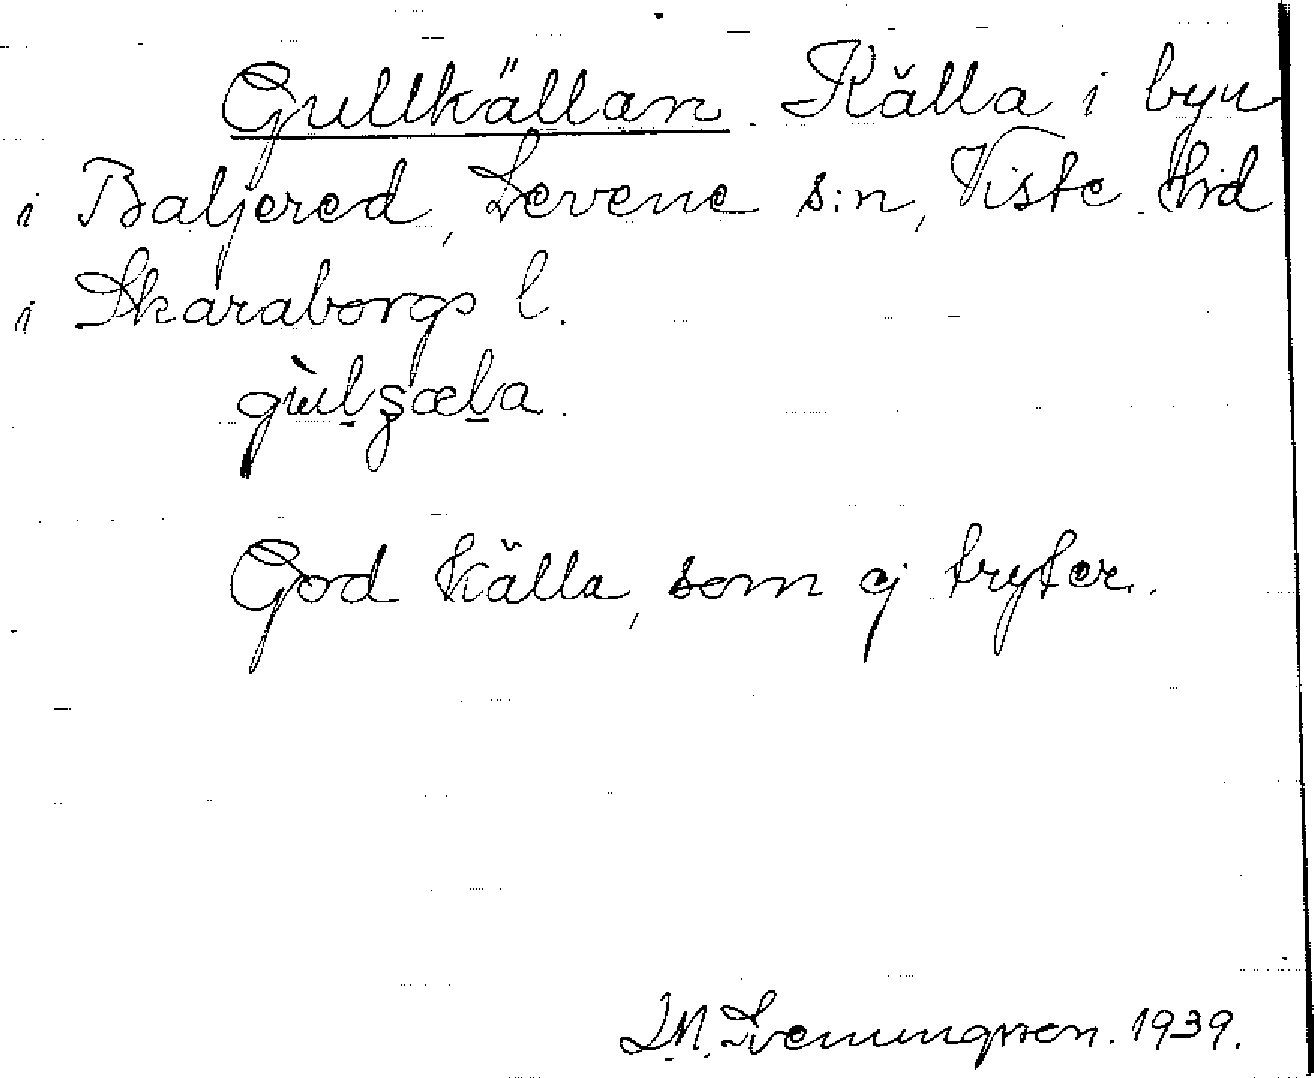 Gullkällan. Källa i byn
i Baljered, Levene s:n, Viste hd
i Skaraborgs l.
God källa, som ej tryter.
Svenungsson. 1939.